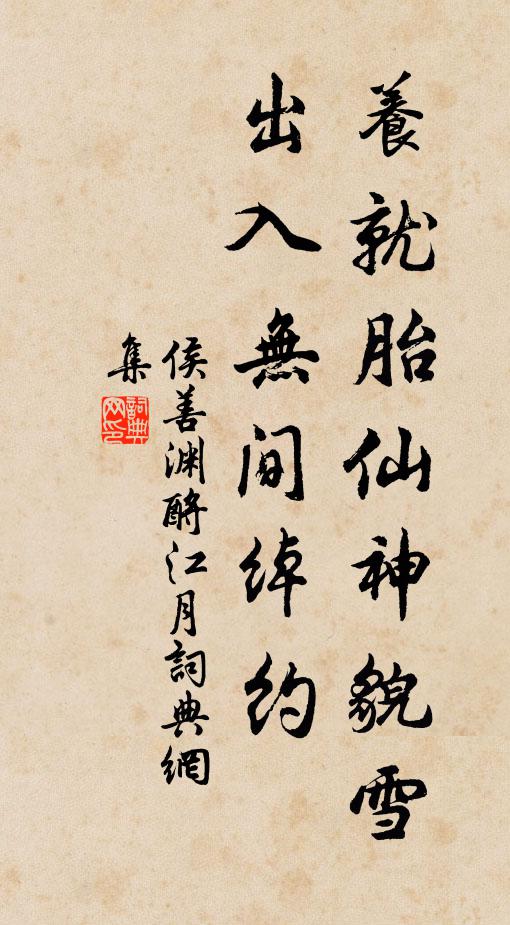 養就胎仙神貌雪
出入無間綽約
侯善淵酹江月詞典網
集
詞典网印